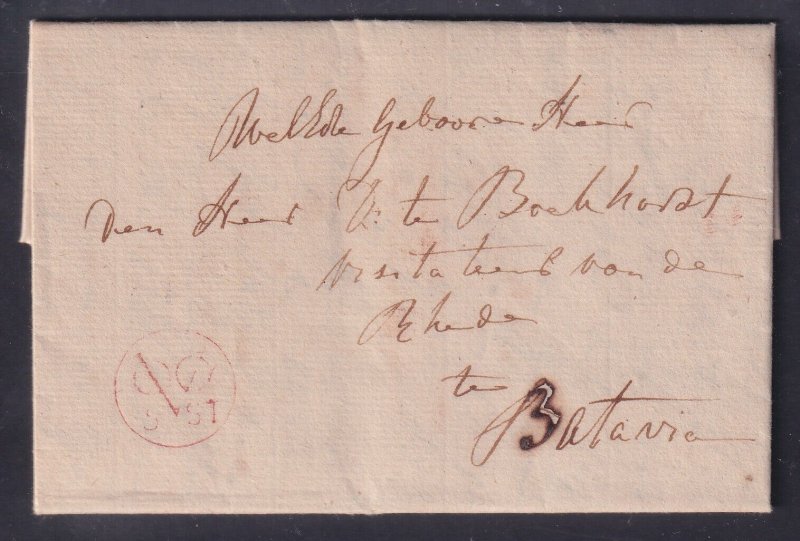 Welede Geboore Heer
den Heer D: te Boekhorst
visitateur van de
Rhede
te
Batavia
3